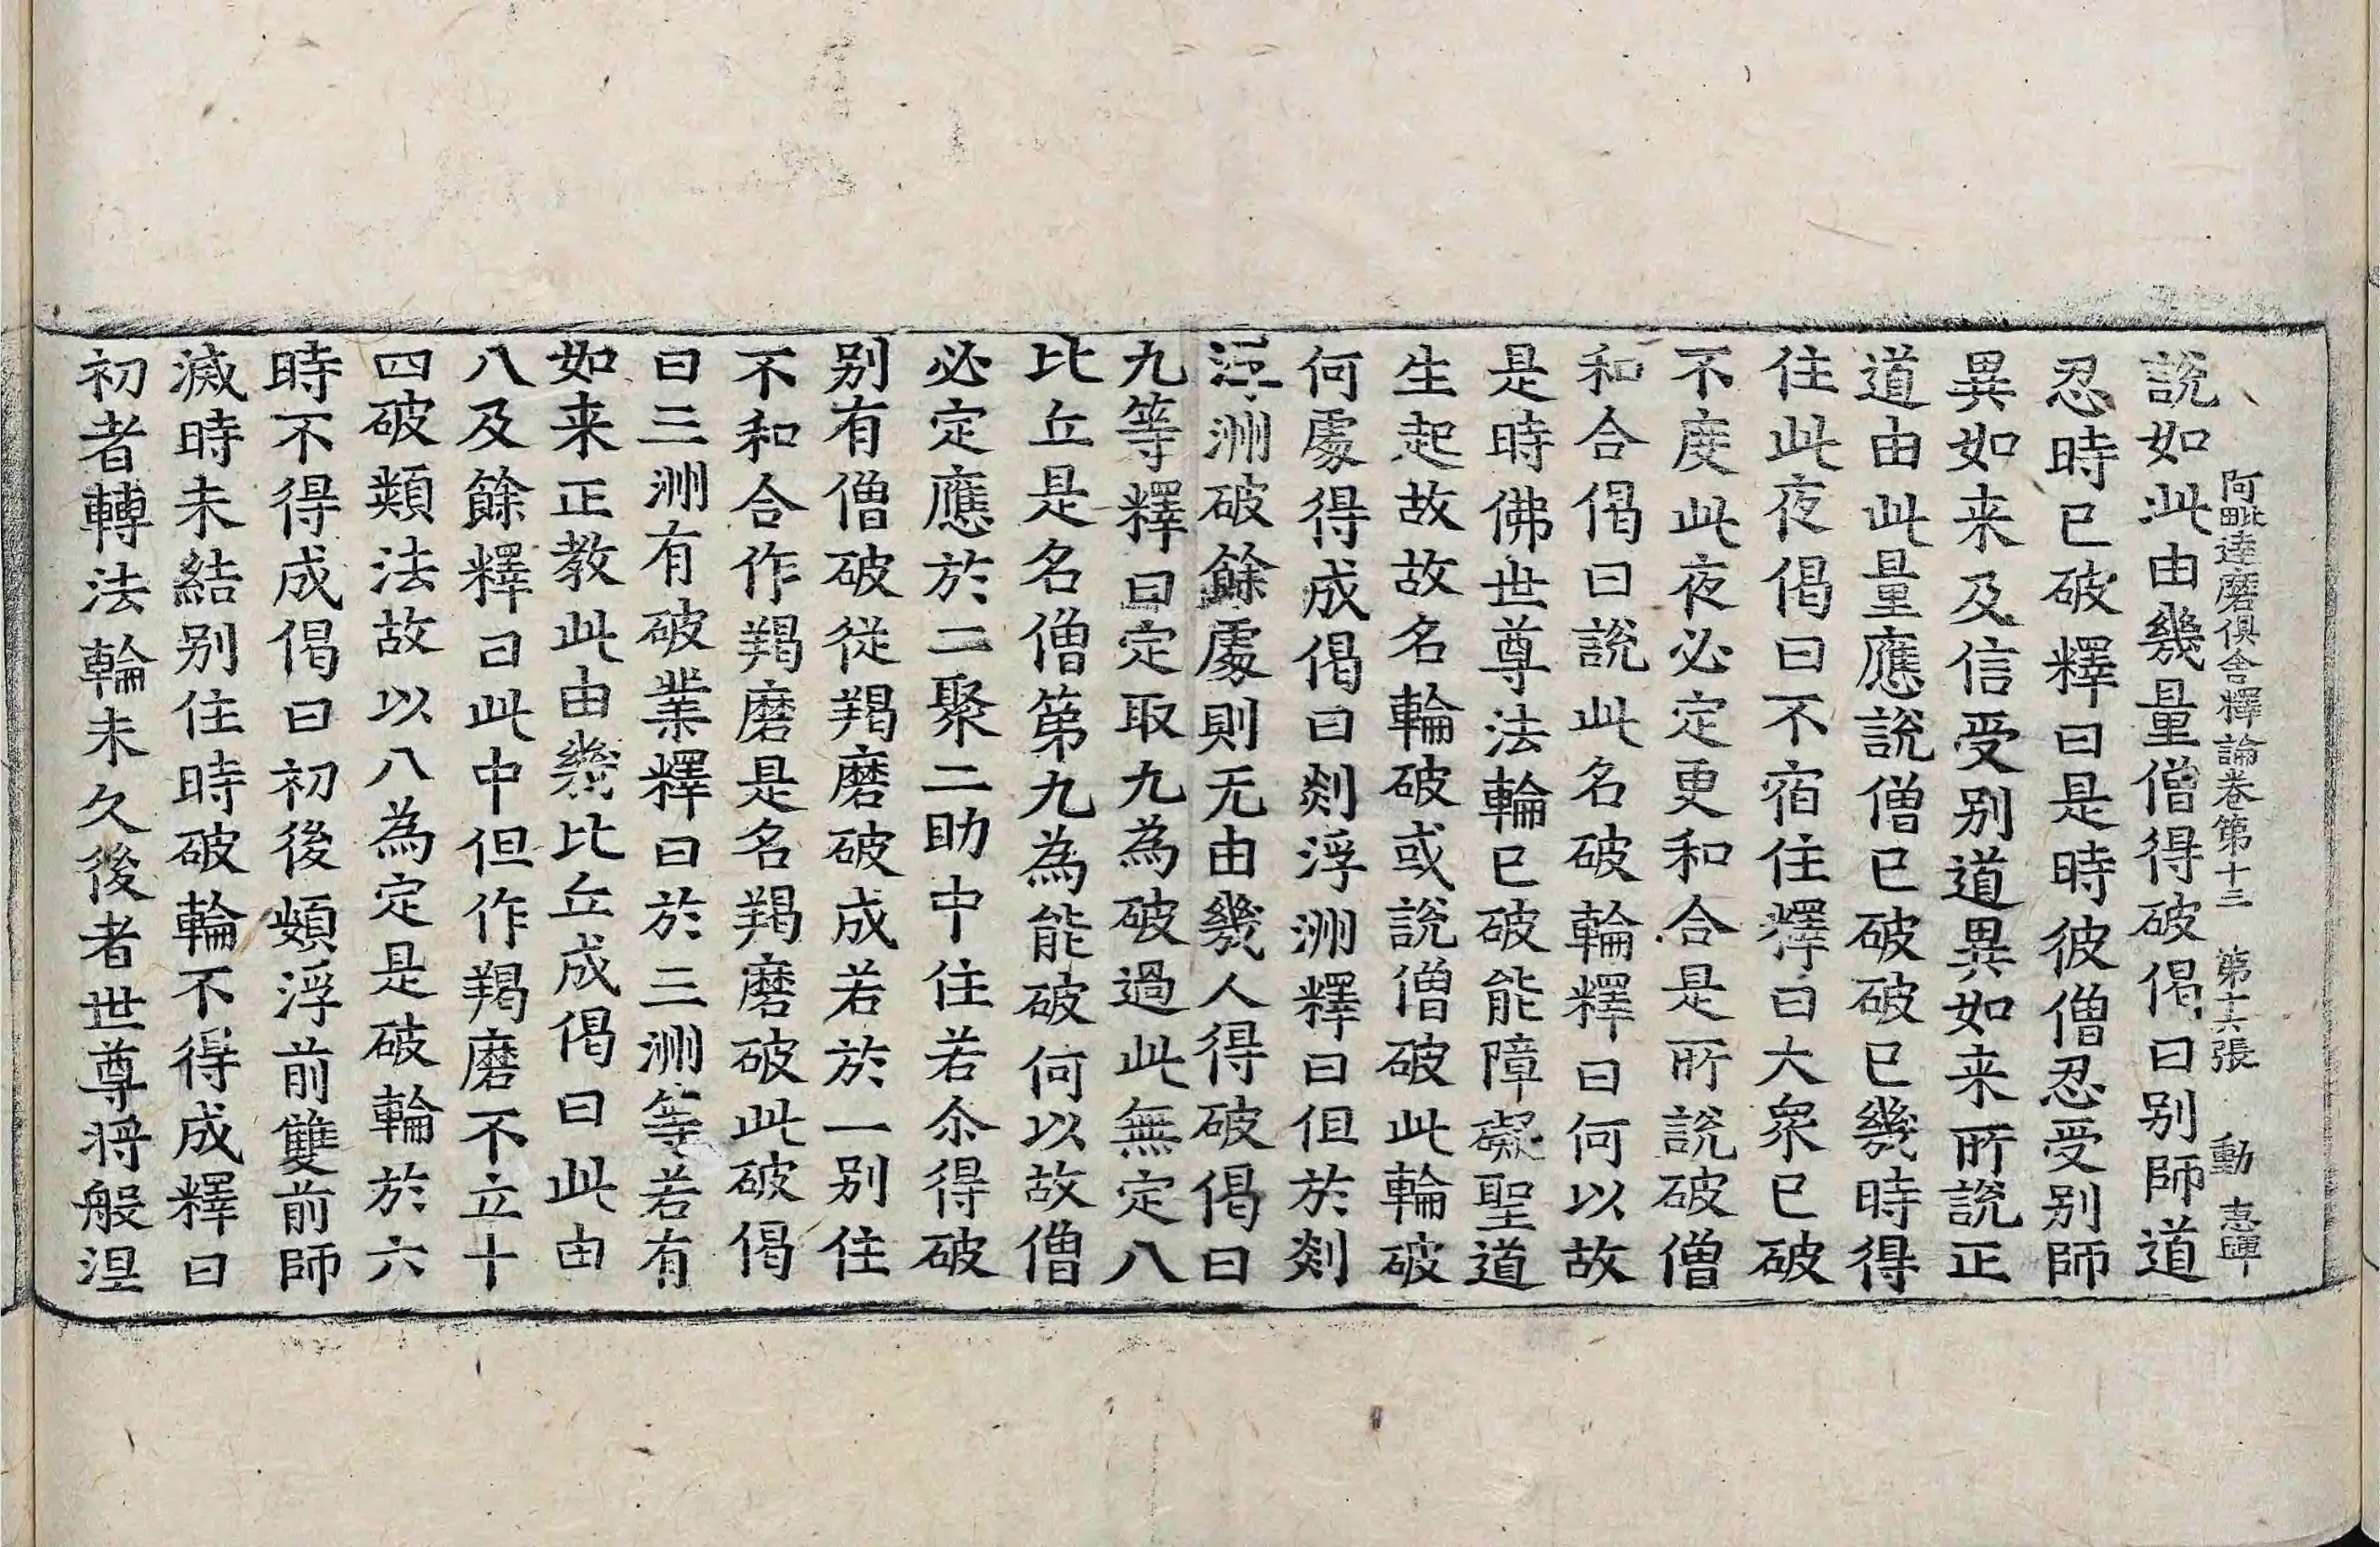 阿毗達磨俱舍釋論卷第十三 第十六張 動 惠暉
說如此由幾量僧得破偈曰別師道
忍時已破釋曰是時彼僧忍受別師
異如来及信受別道異如来所說正
道由此量應說僧已破破已幾時得
住此夜偈曰不宿住釋曰大衆已破
不度此夜必定更和合是所說破僧
和合偈曰說此名破輪釋曰何以故
是時佛世尊法輪已破能障礙聖道
生起故故名輪破或說僧破此輪破
何處得成偈曰剡浮洲釋曰但於剡
浮洲破餘處則无由幾人得破偈曰
九等釋曰定取九為破過此無定八
比丘是名僧第九為能破何以故僧
必定應於二聚二助中住若尒得破
別有僧破從羯磨破成若於一別住
不和合作羯磨是名羯磨破此破偈
曰三洲有破業釋曰於三洲等若有
如来正教此由幾比丘成偈曰此由
八及餘釋曰此中但作羯磨不立十
四破類法故以八為定是破輪於六
時不得成偈曰初後頞浮前雙前師
滅時未結別住時破輪不得成釋曰
初者轉法輪未久後者世尊将般涅